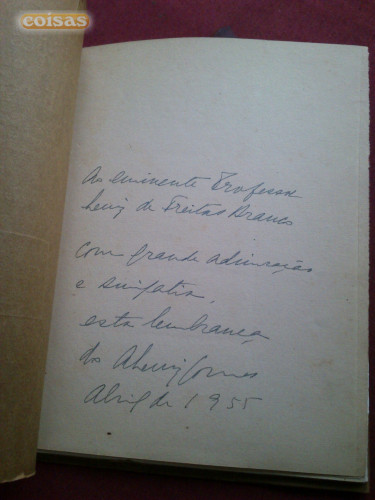 coisas
Ao eminente Professor
Luiz de Freitas Branco
com grande admiração
e simpatia,
esta lembrança
do
Abril de 1955